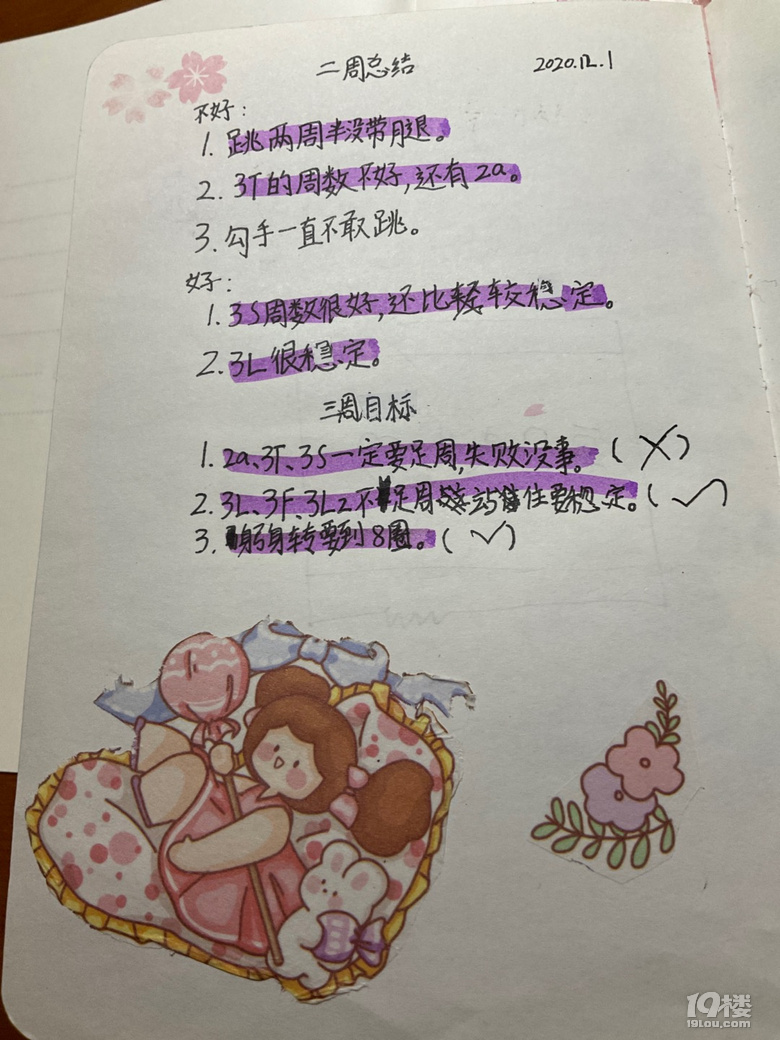 二周总结 2020.12.1
不好：
1. 跳两周半没带腿。
2. 3T的周数不好，还有2a。
3. 勾手一直不敢跳。
好：
1. 3S周数很好，还比较稳定。
2. 3L很稳定。
三周目标
1. 2a、3T、3S一定要足周，失败没事。（×）
2. 3L、3F、3Lz不足周站住要稳定。（✓）
3. 躬身转要到8圈。（✓）
19楼
19lou.com